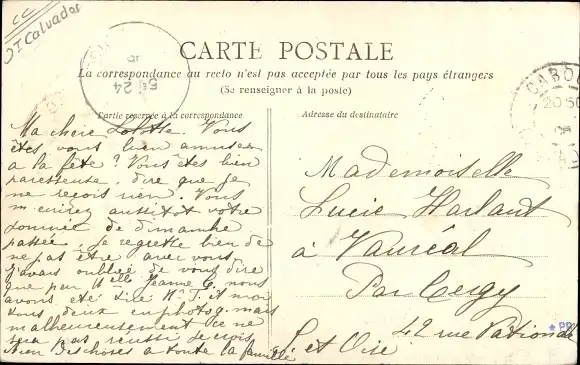 CC
DI Calvados
CARTE POSTALE
La correspondance au recto n'est pas acceptée par tous les pays étrangers
(Se renseigner à la poste)
Partie réservée à la correspondance
Ma chère Lolotte. Vous
êtes vous bien amusée
a la fête? Vous êtes bien
paresseuse, dire que je
ne reçois rien. Vous
m'ecrirez aussitôt votre
journée de dimanche
passée. Je regrette bien de
ne pas être avec vous
J'avais oublié de vous dire
que par Melle Jeanne C. nous
avons été tiré Mr T. et moi
tous deux en photog. mais
malheureusement ce ne
sera pas reussi je crois
Bien des choses a toute la famille
Adresse du destinataire
Mademoiselle
Lucie Harlaut
à Vauréal
Par Cergy
42 rue Nationale
S. et Oise
CABO
20 50
5 24
* PP